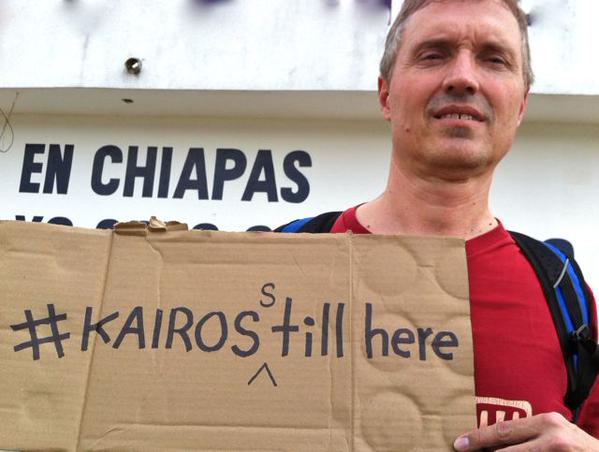 EN CHIAPAS
#KAIROS still here